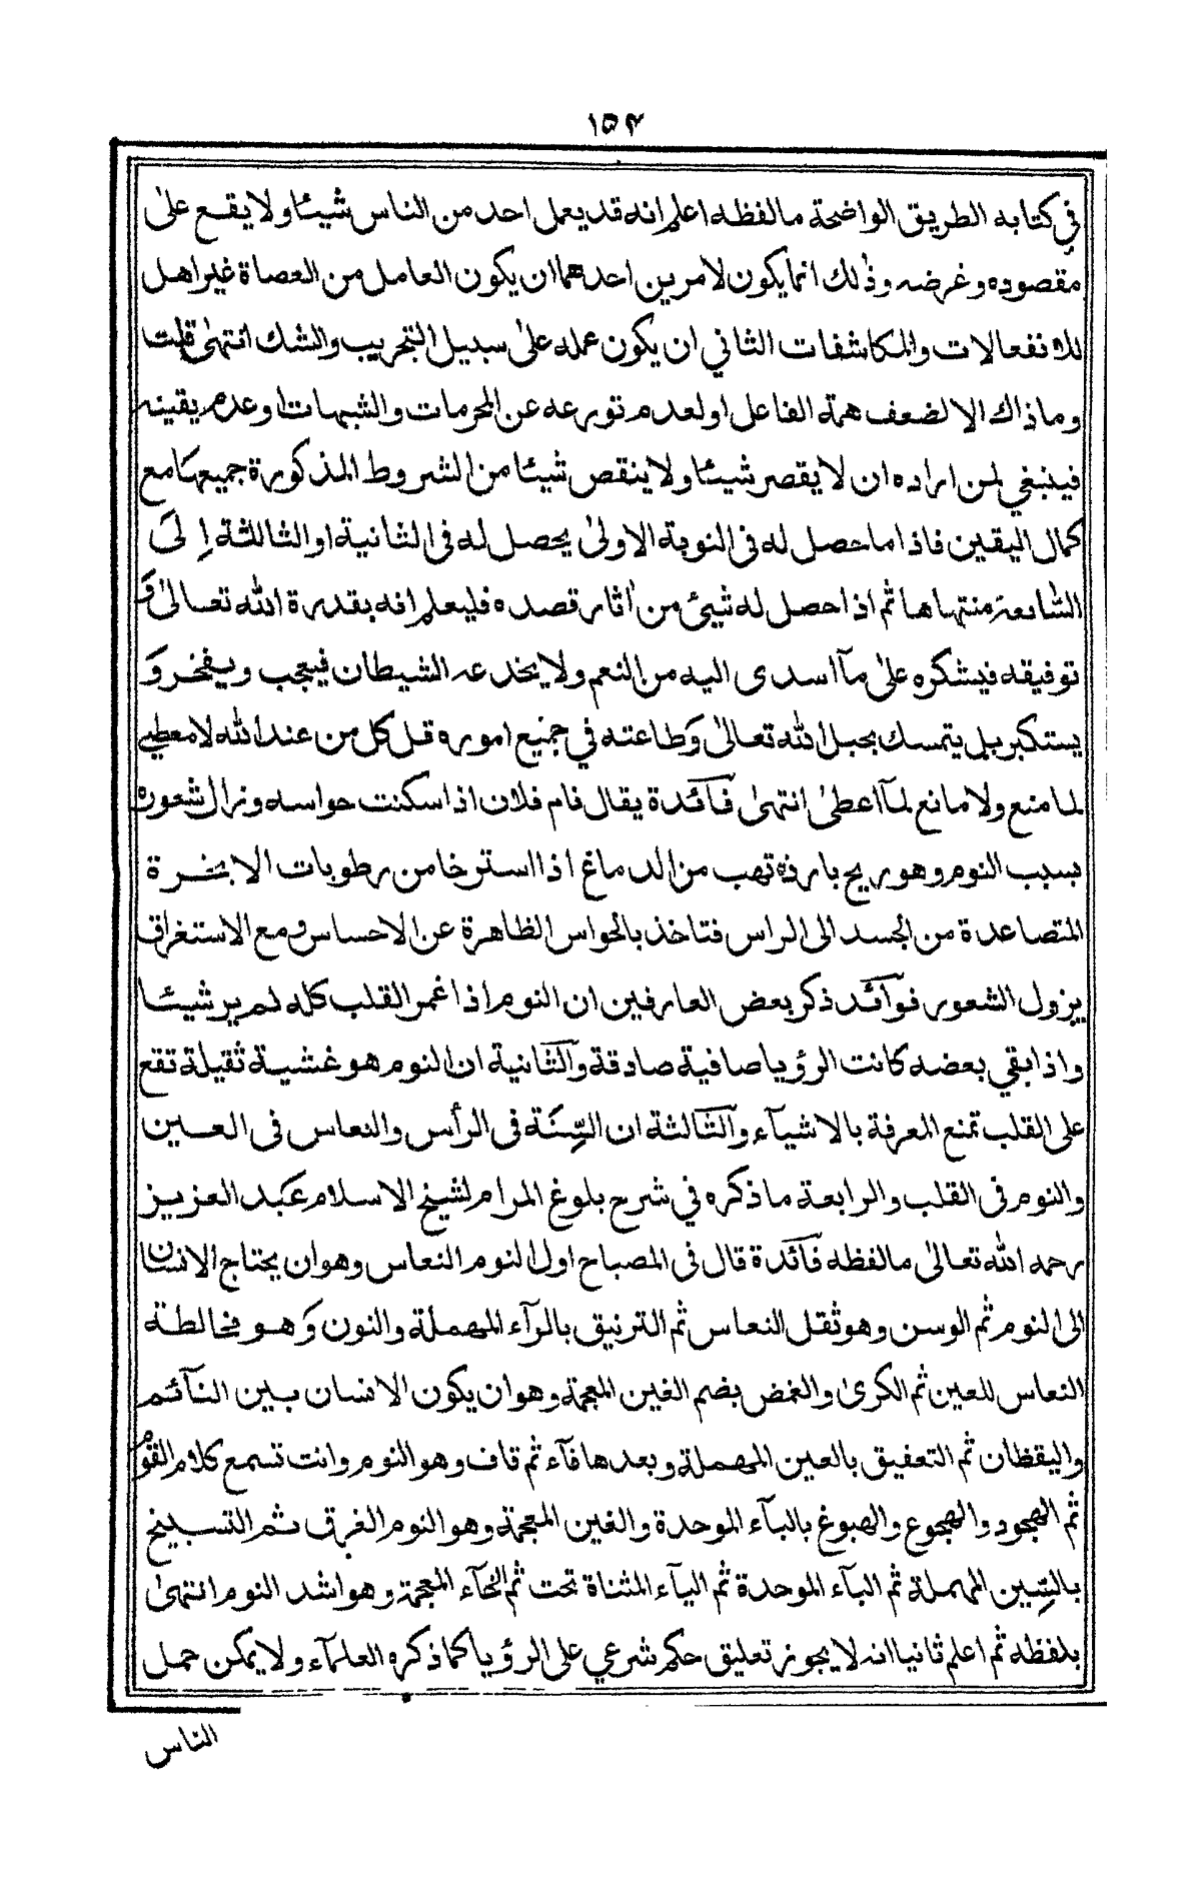 ١٥٤
في كتابه الطريق الواضحة مالفظه اعلم انه قد يعمل احد من الناس شيئا ولا يقع على
مقصوده وغرضه وذلك انما يكون لامرين احدهما ان يكون العامل من العصاة غير اهل
للانفعالات والمكاشفات الثاني ان يكون عمله على سبيل التجريب والشك انتهى قلت
وما ذاك الا لضعف همة الفاعل او لعدم تورعه عن المحرمات والشبهات او عدم يقينه
فينبغي لمن اراده ان لا يقصر شيئا ولا ينقص شيئا من الشروط المذكورة جميعها مع
كمال اليقين فاذا ما حصل له فى النوبة الاولى يحصل له فى الثانية او الثالثة اِلىَ
السابعة منتهاها ثم اذا حصل له شيئ من اٰثار قصده فليعلم انه بقدرة الله تعالىٰ وَ
توفيقه فيشكره على مآ اسدى اليه من النعم ولا يخدعه الشيطان فيعجب ويفخر وَ
يستكبر بل يتمسك بحبل الله تعالىٰ وَطاعته في جميع اموره قل كل من عند الله لا معطي
لما منع ولا مانع لمآ اعطىٰ انتهىٰ فآئدة يقال نام فلان اذا سكنت حواسه وزال شعوره
بسبب النوم وهو ريح باردة تهب من الدماغ اذا استرخا من رطوبات الابخرة
المتصاعدة من الجسد الى الراس فتاخذ بالحواس الظاهرة عن الاحساس ومع الاستغراق
يزول الشعور فوآئد ذكر بعض العارفين ان النوم اذا غمر القلب كله لم ير شيئا
واذا بقي بعضه كانت الرؤيا صافية صادقة والثانية ان النوم هو غشية ثقيلة تقع
على القلب تمنع المعرفة بالاشيآء والثالثة ان السِّنَة فى الرأس والنعاس فى العين
والنوم فى القلب والرابعة ما ذكره في شرح بلوغ المرام لشيخ الاسلام عَبد العزيز
رحمه الله تعالىٰ مالفظه فآئدة قال فى المصباح اول النوم النعاس وهو ان يحتاج الانسان
الى النوم ثم الوسن وهو ثقل النعاس ثم الترنيق بالرآء المهملة والنون وَهو مخالطة
النعاس للعين ثم الكرىٰ والغمض بضم الغين المعجمة وهو ان يكون الانسان بين النآئم
واليقظان ثم التعفيق بالعين المهملة وبعدها فآء ثم قاف وهو النوم وانت تسمع كلام القوم
ثم الهجود والهجوع والهبوغ بالبآء الموحدة والغين المعجمة وهو النوم الغرق ثم التسبيخ
بالسِّين المهملة ثم البآء الموحدة ثم اليآء المثناة تحت ثم الخآء المعجمة وهو اشد النوم انتهىٰ
بلفظه ثم اعلم ثانيا انه لا يجوز تعليق حكم شرعي على الرؤيا كما ذكره العلمآء ولا يمكن حمل
الناس